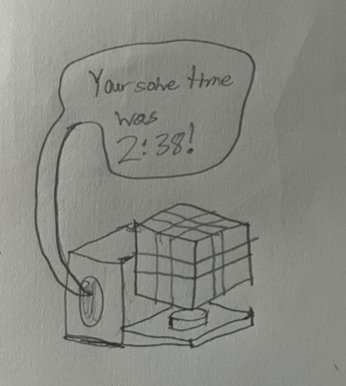 Your solve time
was
2:38!